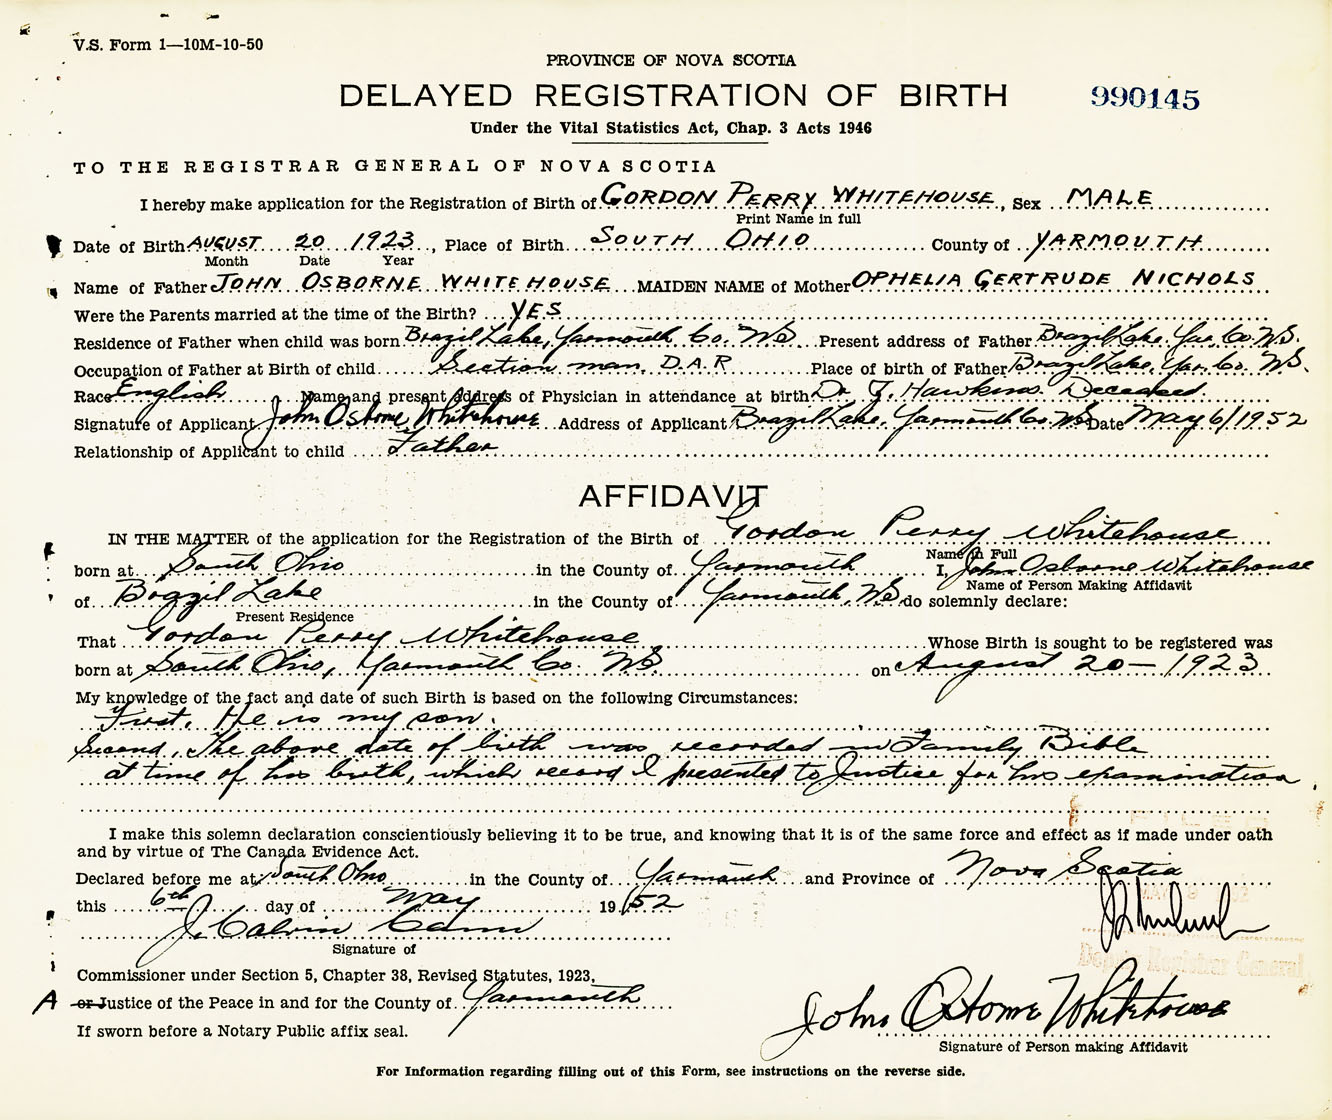 V.S. Form 1—10M-10-50
PROVINCE OF NOVA SCOTIA
DELAYED REGISTRATION OF BIRTH
990145
Under the Vital Statistics Act, Chap. 3 Acts 1946
TO THE REGISTRAR GENERAL OF NOVA SCOTIA
I hereby make application for the Registration of Birth of GORDON PERRY WHITEHOUSE, Sex MALE
Print Name in full
Date of Birth AUGUST 20 1923, Place of Birth SOUTH OHIO County of YARMOUTH
Month Date Year
Name of Father JOHN OSBORNE WHITEHOUSE MAIDEN NAME of Mother OPHELIA GERTRUDE NICHOLS
Were the Parents married at the time of the Birth? YES
Residence of Father when child was born Brazil Lake, Yarmouth Co. NS Present address of Father Brazil Lake, Yar. Co. NS.
Occupation of Father at Birth of child Section man, D.A.R Place of birth of Father Brazil Lake, Yar. Co. NS.
Race English Name and present address of Physician in attendance at birth Dr. J. Hawkins Deceased
Signature of Applicant John Osborne Whitehouse Address of Applicant Brazil Lake, Yarmouth Co. NS Date May 6/1952
Relationship of Applicant to child Father
AFFIDAVIT
IN THE MATTER of the application for the Registration of the Birth of Gordon Perry Whitehouse
Name in Full
born at South Ohio in the County of Yarmouth I, John Osborne Whitehouse
Name of Person Making Affidavit
of Brazil Lake in the County of Yarmouth, NS do solemnly declare:
Present Residence
That Gordon Perry Whitehouse Whose Birth is sought to be registered was
born at South Ohio, Yarmouth Co. NS on August 20 – 1923
My knowledge of the fact and date of such Birth is based on the following Circumstances:
First, He is my son.
Second, The above date of birth was recorded in Family Bible
at time of his birth, which record I presented to Justice for his examination
I make this solemn declaration conscientiously believing it to be true, and knowing that it is of the same force and effect as if made under oath
and by virtue of The Canada Evidence Act.
Declared before me at South Ohio in the County of Yarmouth and Province of Nova Scotia
this 6th day of May 1952
J. Calvin Cann
Signature of
Deputy Registrar General
Commissioner under Section 5, Chapter 38, Revised Statutes, 1923,
A or Justice of the Peace in and for the County of Yarmouth
If sworn before a Notary Public affix seal.
John Osborne Whitehouse
Signature of Person making Affidavit
For Information regarding filling out of this Form, see instructions on the reverse side.